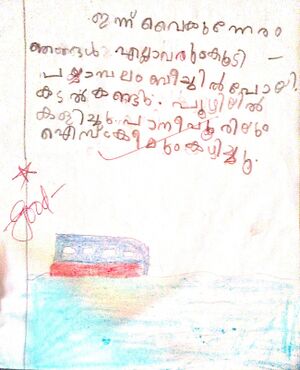 ഇന്ന് വൈകുന്നേരം
ഞങ്ങൾ എല്ലാവരുംകൂടി
പയ്യാമ്പലം ബീച്ചിൽ പോയി.
കടൽ കണ്ടു. പൂഴിയിൽ
കളിച്ചു. പാനീപൂരിയും
ഐസ്ക്രീമും കഴിച്ചു.
Good